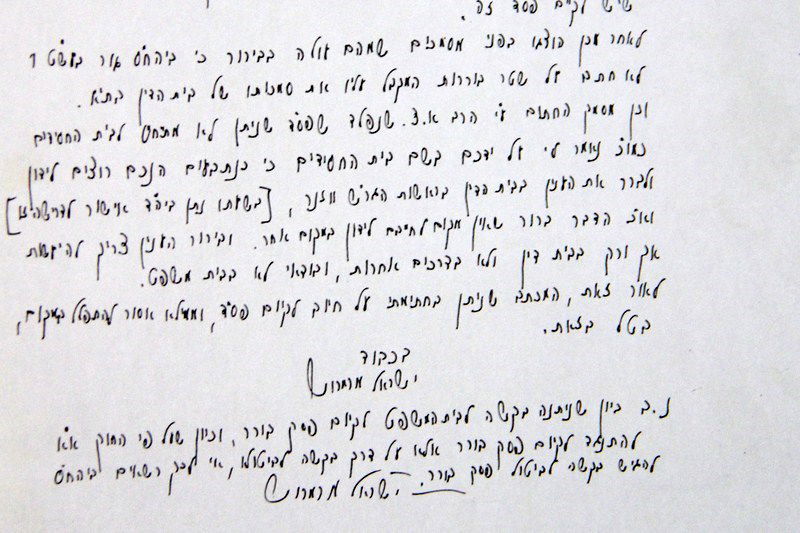 שיש לקיים פסד זה.
לאחר מכן הוצגו בפני מסמכים שמהם עולה בבירור כי ביהח"ס גור בעש"ט 7
לא חתם על שטר בוררות המקבל עליו את סמכותו של בית הדין בת"א.
וכן מסמך החתום ע"י הרב א.צ. שנפלד שפס"ד שניתן לא מתיחס לבית החסידים
כמו"כ נאמר לי על ידכם בשם בית החסידים כי כנתבעים הנכם רוצים לידון
ולברר את הענין בבית הדין בראשות הגר"ש ווזנר, [בשעתו נתן ביה"ד אישור לדרישה זו]
וא"כ הדבר ברור שאין מקום לחייבם לידון במקום אחר. ובירור הענין צריך להיעשות
אך ורק בבית דין ולא בדרכים אחרות, ובודאי לא בבית משפט.
לאור זאת, המכתב שניתן בחתימתי על חיוב לקיום פס"ד, וממילא אסור להתפלל במקום,
בטל בזאת.
בכבוד
ישראל
נ.ב כיון שניתנה בקשה לבית המשפט לקיום פסק בורר, וכיון שעל פי החוק א"א
להתנגד לקיום פסק בורר אלא על דרך בקשה לביטולו, אי לכך רשאים ביהח"ס
להגיש בקשה לביטול פסק בורר. ישראל